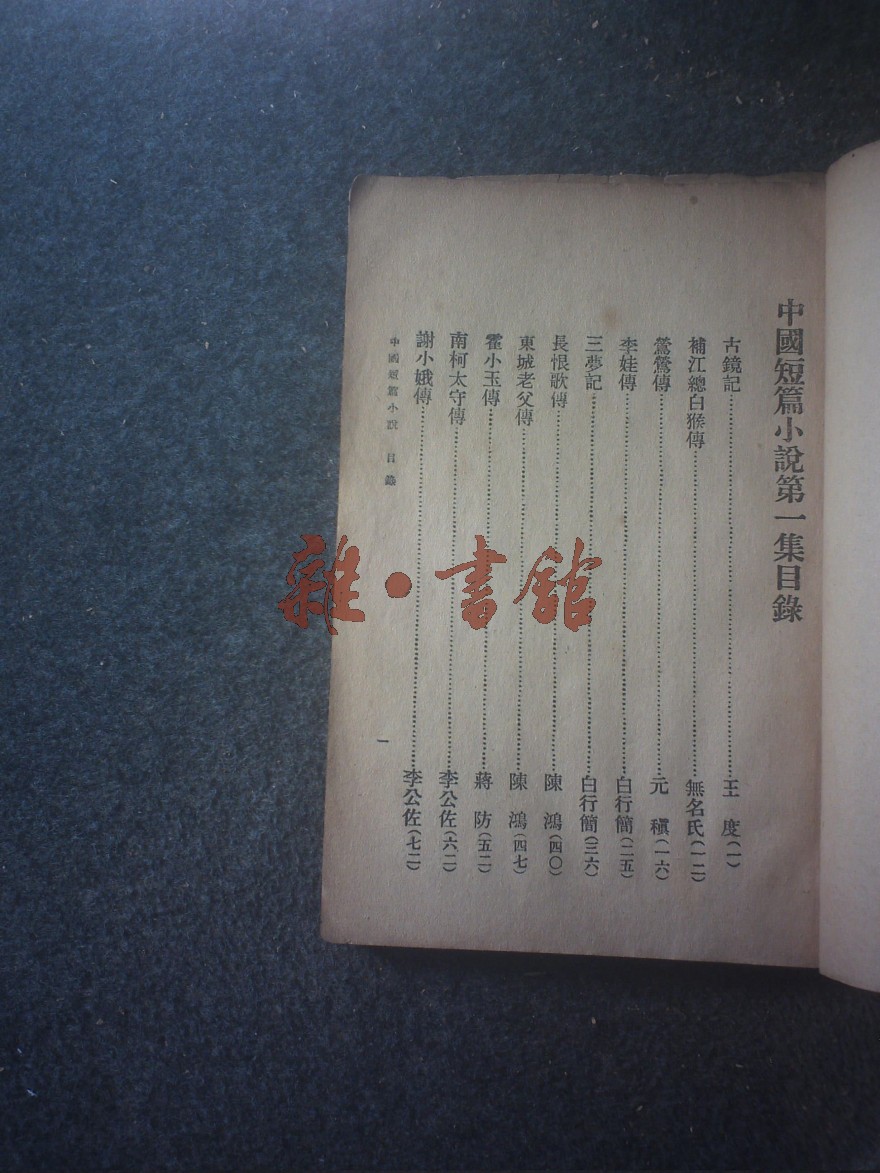 中國短篇小說第一集目錄
古鏡記……王度(一)
補江總白猴傳……無名氏(一二)
鶯鶯傳……元稹(一六)
李娃傳……白行簡(二五)
三夢記……白行簡(三六)
長恨歌傳……陳鴻(四〇)
東城老父傳……陳鴻(四七)
霍小玉傳……蔣防(五二)
南柯太守傳……李公佐(六二)
謝小娥傳……李公佐(七二)
中國短篇小說 目錄
一
雜·書館